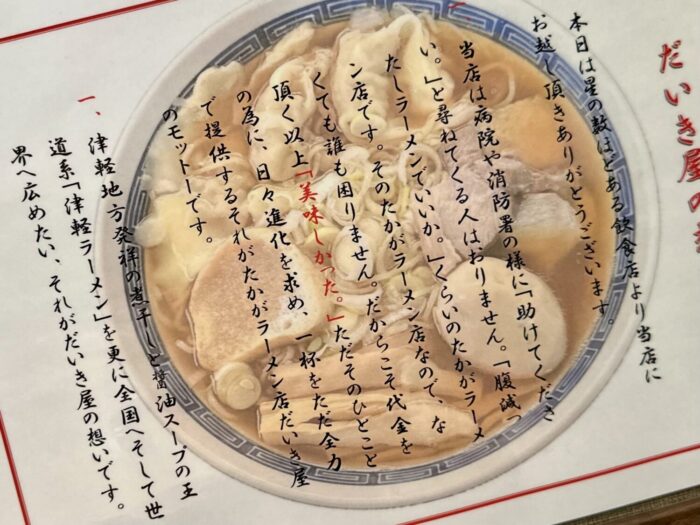 だいき屋の
本日は星の数ほどある飲食店より当店に
お越し頂きありがとうございます。
一
当店は病院や消防署の様に「助けてくださ
い。」と尋ねてくる人はおりません。「腹減っ
たしラーメンでいいか。」くらいのたかがラーメ
ン店です。そのたかがラーメン店なので、な
くても誰も困りません。だからこそ代金を
頂く以上「美味しかった。」ただそのひとこと
の為に、日々進化を求め、一杯をただ全力
で提供するそれがたかがラーメン店だいき屋
のモットーです。
一、津軽地方発祥の煮干しと醤油スープの王
道系「津軽ラーメン」を更に全国へそして世
界へ広めたい、それがだいき屋の想いです。